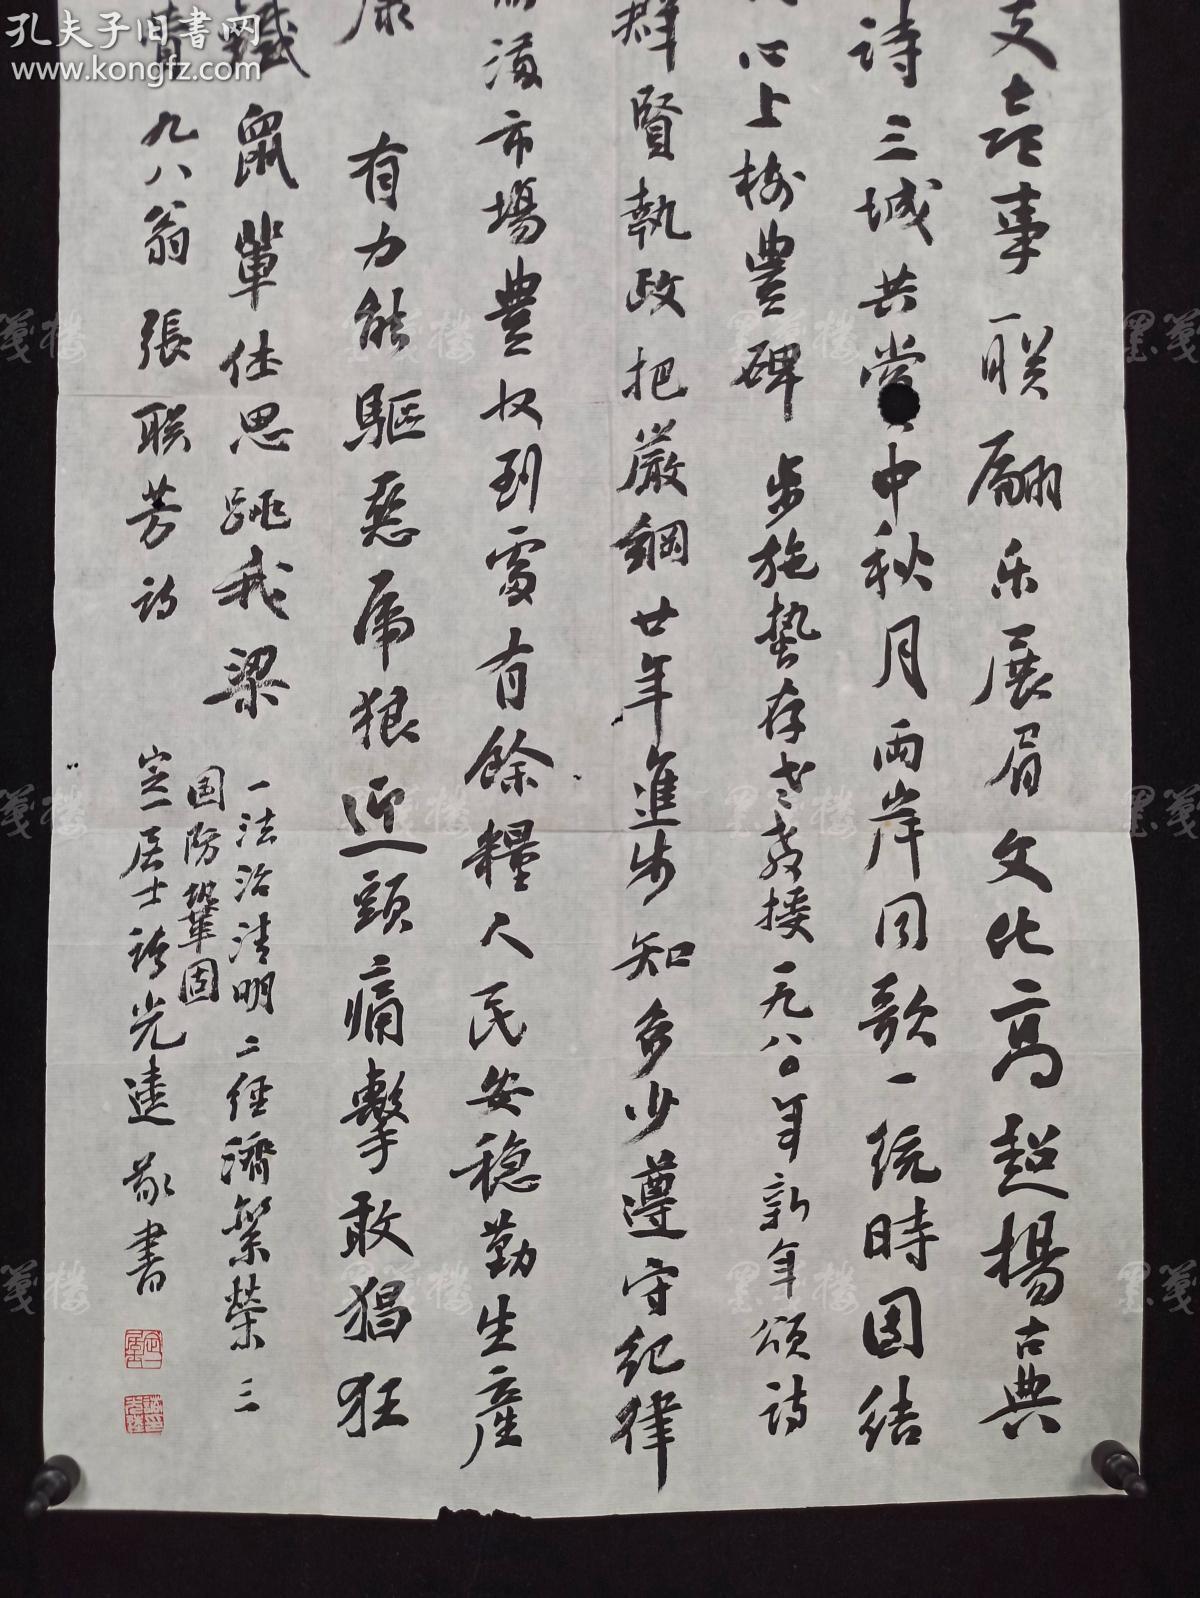 孔夫子旧书网
www.kongfz.com
支喜事一联翩乐展眉文化高超揚古典
詩三城共賞中秋月兩岸同歌一统時团结
心上樹豐碑 步施蛰存老教授一九八〇年新年颂诗
群賢執政把嚴綱廿年進步知多少遵守纪律
市場豐收到處有餘糧人民安稳勤生産
康 有力能驅惡虎狼迎頭痛擊敢猖狂
鐵鼠輩休思跳我梁 一法治清明二经濟繁榮三
国防巩鞏固
九八翁張联芳诗 定一居士 光達敬書
墨笺楼